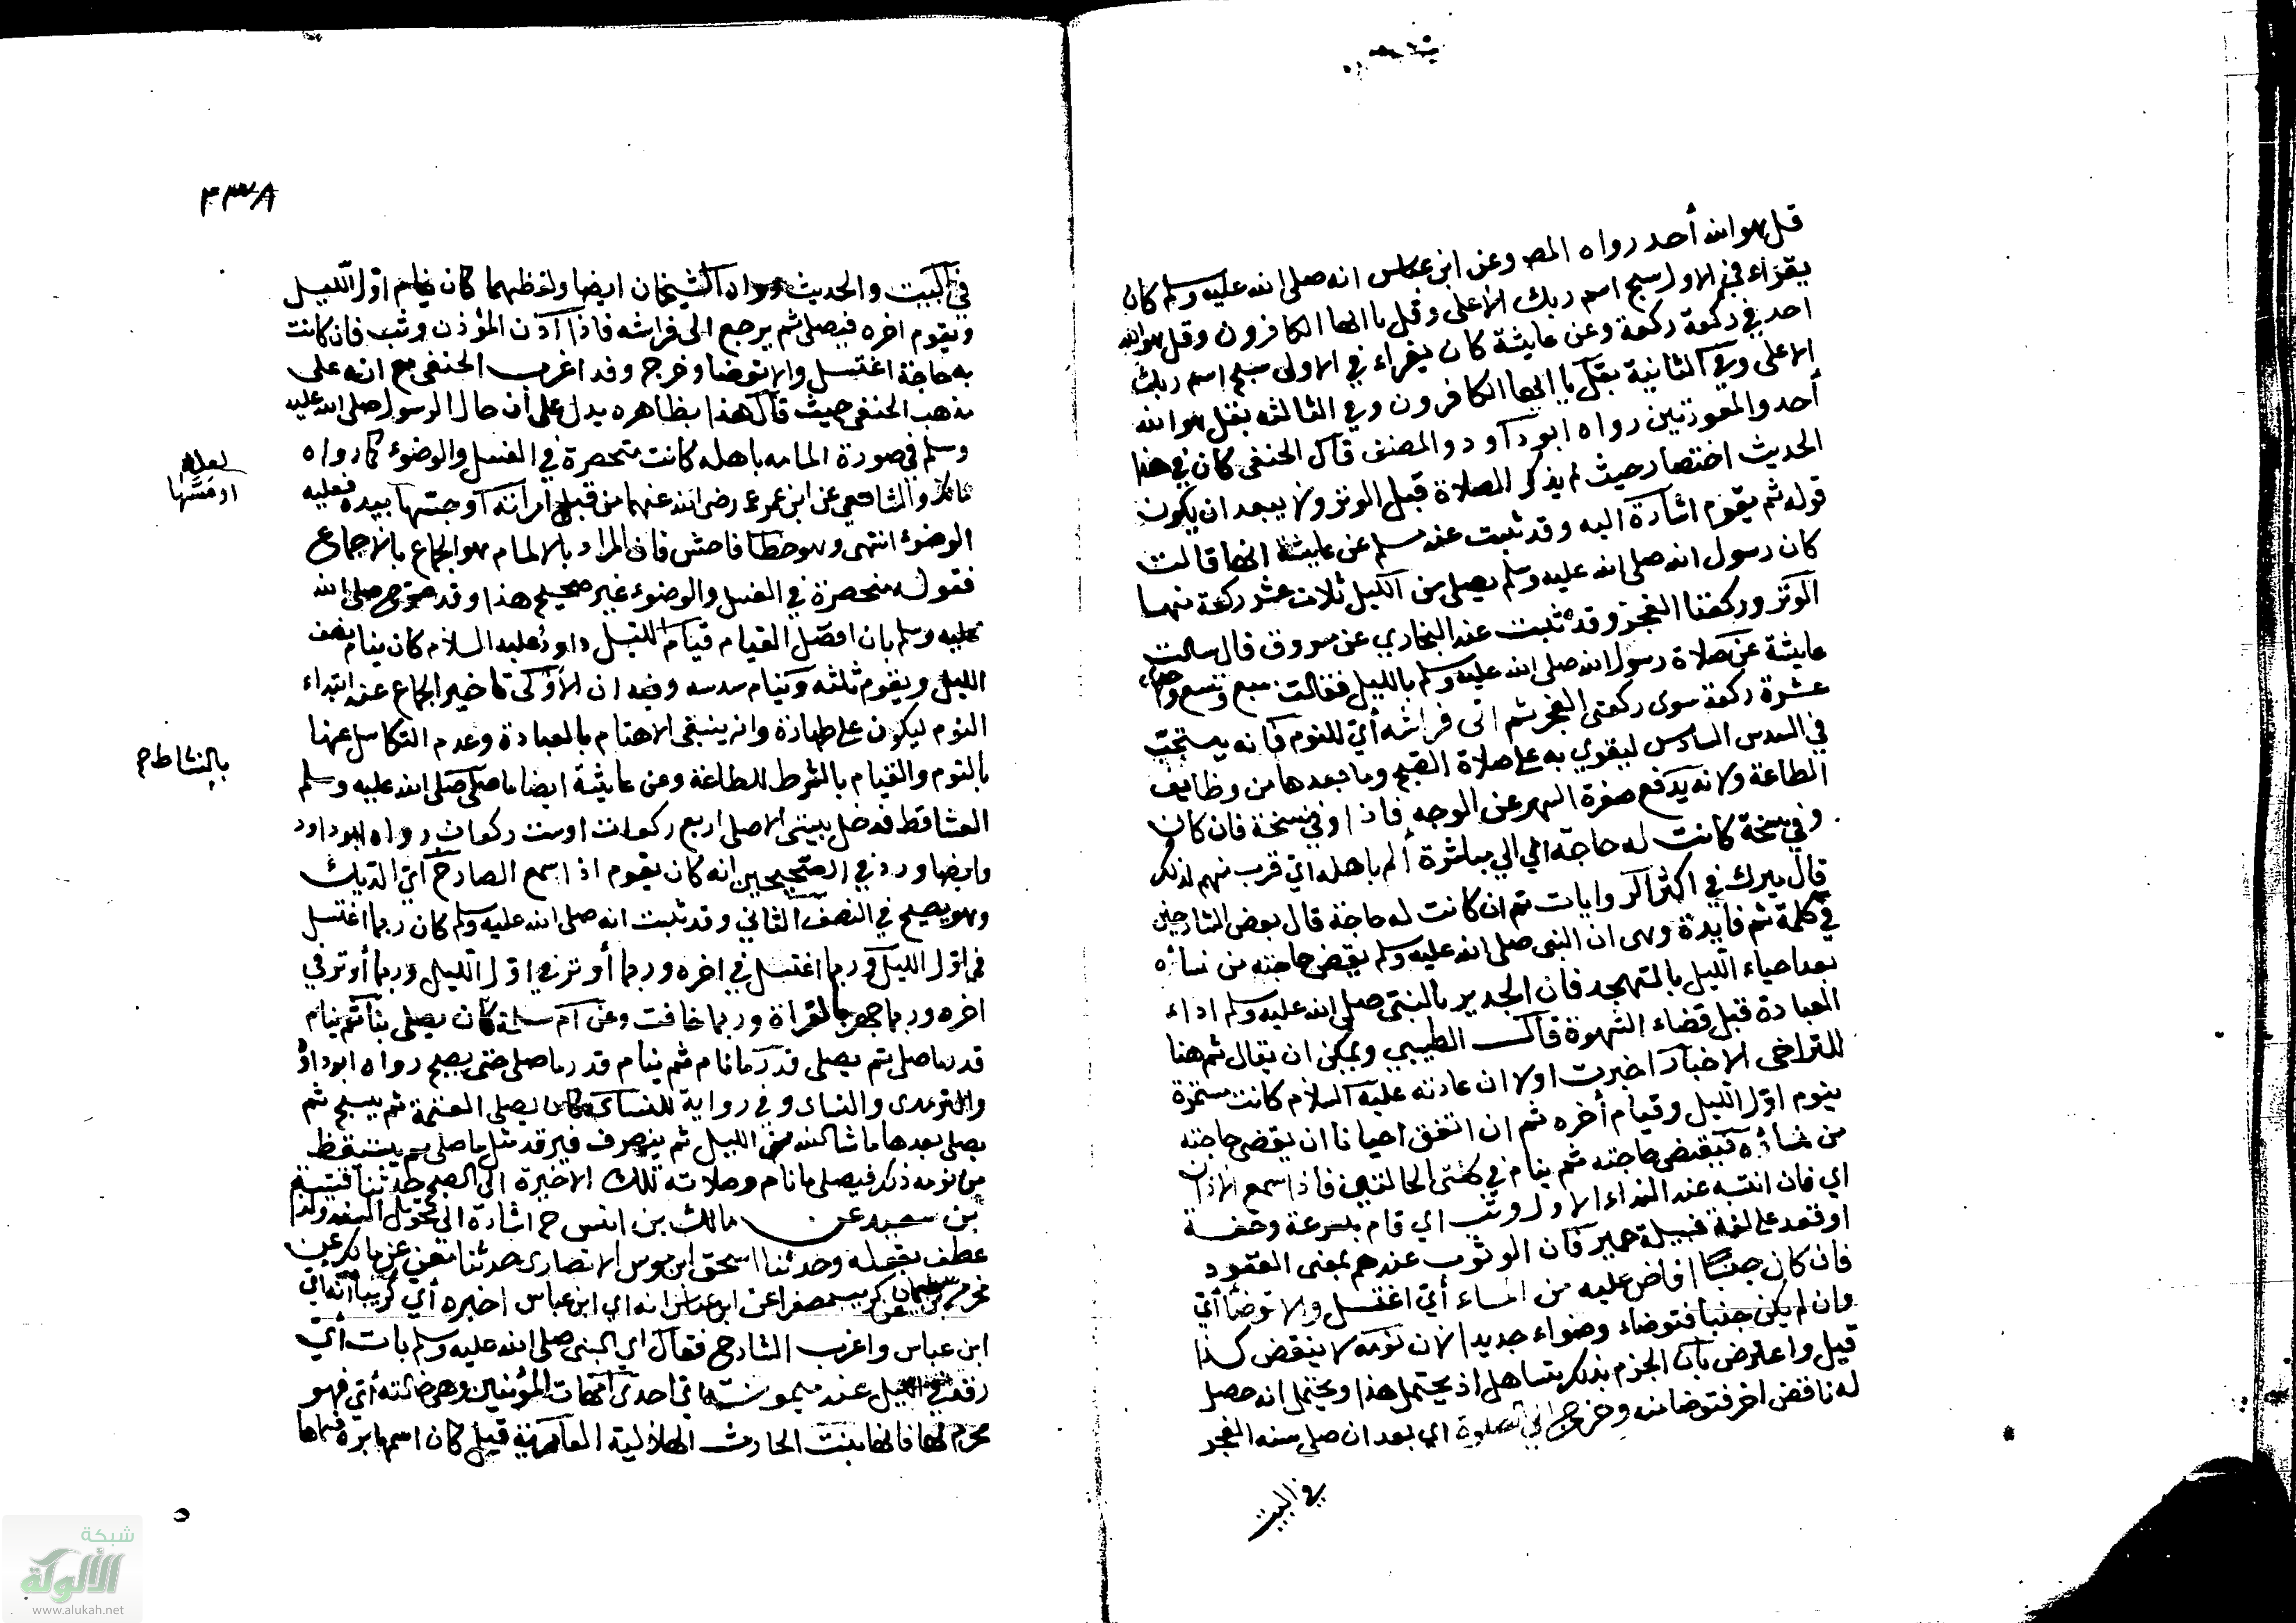 قل هو الله أحد رواه المص وعن ابن عباس انه صلى الله عليه وسلم كان
يقراء في الاولى سبح اسم ربك الاعلى وقل يا ايها الكافرون وقل هو الله
احد في ركعة ركعة وعن عايشة كان يقراء في الاولى سبح اسم ربك
الاعلى وفي الثانية بقل يا ايها الكافرون وفي الثالثه بقل هو الله
أحد والمعوذتين رواه ابو داود والمصنف قال الحنفي كان في هذا
الحديث اختصار حيث لم يذكر الصلاة قبل الوتر ولا يبعد ان يكون
قوله ثم يقوم اشارة اليه وقد ثبت عند مسلم عن عايشة انها قالت
كان رسول الله صلى الله عليه وسلم يصلى من الليل ثلاث عشر ركعة منها
الوتر وركعتا الفجر وقد ثبت عند البخاري عن مسروق قال سالت
عايشة عن صلاة رسول الله صلى الله عليه وسلم بالليل فقالت سبع وتسع واحدى
عشرة ركعة سوى ركعتي الفجر ثم اتى فراشه أي للنوم فانه يستحب
في السدس السادس ليقوي به على صلاة الصبح وما بعدها من وظايف
الطاعة ولانه يدفع صفرة السهر عن الوجه فاذا وفي نسخة فان كان
وفي نسخة كانت له حاجة اي الي مباشرة ألم باهله اي قرب منهم لذلك
قال ميرك في اكثر الروايات ثم ان كانت له حاجة قال بعض الشارحين
في كلمة ثم فايدة وهى ان النبي صلى الله عليه وسلم يقضي حاجته من نسائه
بعد احياء الليل بالتهجد فان الجدير بالنبي صلى الله عليه وسلم اداء
العبادة قبل قضاء الشهوة قال الطيبي ويمكن ان يقال ثم هنا
للتراخي الاخبار اخبرت اولا ان عادته عليه السلام كانت مستمرة
بنوم اول الليل وقيام أخره ثم ان اتفق احيانا ان يقضى حاجته
من نسائه فيقضى حاجته ثم ينام في كلتى الحالتين فاذا سمع الاذان
اي فان انتبه عند النداء الاول وثب اي قام بسرعة وخفة
او قعد على لغة قبيلة حمير فان الوثوب عندهم بمعنى القعود
فان كان جنبا افاض عليه من الماء أي اغتسل والا توضأ أي
وان لم يكن جنبا فتوضاء وضواء جديدا لان نومه لا ينقض كذا
قيل واعترض بان الجزم بذلك تساهل اذ يحتمل هذا ويحتمل انه حصل
له ناقض اخر فتوضا منه وخرج الى الصلوة اي بعد ان صلى سنه الفجر
في البيت
٤٣٨
في البيت والحديث رواه الشيخان ايضا ولفظهما كان ينام اول الليل
ويقوم اخره فيصلى ثم يرجع الى فراشه فاذا اذن المؤذن وثب فان كانت
به حاجة اغتسل والا توضا وخرج وقد اغرب الحنفي مع انه على
مذهب الحنفي حيث قال هذا بظاهره يدل على أن حال الرسول صلى الله عليه
وسلم في صورة المامه باهله كانت منحصرة في الغسل والوضوء كما رواه
مالك والشافعي عن ابن عمر رضى الله عنهما من قبل امرأته او جسها بيده فعليه
الوضوء انتهى وهو خطا فاحش فان المراد بالالمام هو الجماع بالاجماع
فقوله منحصرة في الغسل والوضوء غير صحيح هذا وقد صرح صلى الله
عليه وسلم بان افضل القيام قيام الليل داود عليه السلام كان ينام نصف
الليل ويقوم ثلثه وينام سدسه وفيه ان الأولى تاخير الجماع عند ابتداء
النوم ليكون على طهارة وانه ينبغي الاهتمام بالعبادة وعدم التكاسل عنها
بالنوم والقيام بالشرط للطاعة وعن عايشة ايضا ما صلى صلى الله عليه وسلم
العشا قط فدخل بيتي الا صلى اربع ركعات او ست ركعات رواه ابو داود
وايضا ورد في الصحيحين انه كان يقوم اذا سمع الصارخ أي الديك
وهو يصيح في النصف الثاني وقد ثبت انه صلى الله عليه وسلم كان ربما اغتسل
في اول الليل وربما اغتسل في اخره وربما أوتر في اول الليل وربما أوتر في
اخره وربما جهر بالقراة وربما خافت وعن ام سلمة كان يصلى بنا ثم ينام
قدر ما صلى ثم يصلى قدر ما نام ثم ينام قدر ما صلى حتى يصبح رواه ابو داود
والترمذى والنساى وفي رواية للنساى كان يصلى العتمة ثم يسبح ثم
يصلى بعدها ما شا الله من الليل ثم ينصرف فيرقد مثل ما صلى ثم يستيقظ
من نومه ذلك فيصلى ما نام وصلاته تلك الاخيرة الى الصبح حدثنا قتيبة
بن سعيد عن مالك بن انس ح اشارة الى تحويل السند ولذا
عطف بقوله وحدثنا اسحق ابن موسى الانصارى حدثنا معن عن مالك عن
مخرمة بن سليمان عن كريب مصغرا عن ابن عباس انه اي ابن عباس اخبره أي كريبا انه اي
ابن عباس واغرب الشارح فقال اي النبي صلى الله عليه وسلم بات أي
رقد في الليل عند ميمونة اي احدى امهات المؤمنين وهي خالته أي فهو
محرم لها فانها بنت الحارث الهلالية العامرية قيل كان اسمها برة فسماها
لعله
او مسها
بالنشاط م
شبكة
الألوكة
www.alukah.net